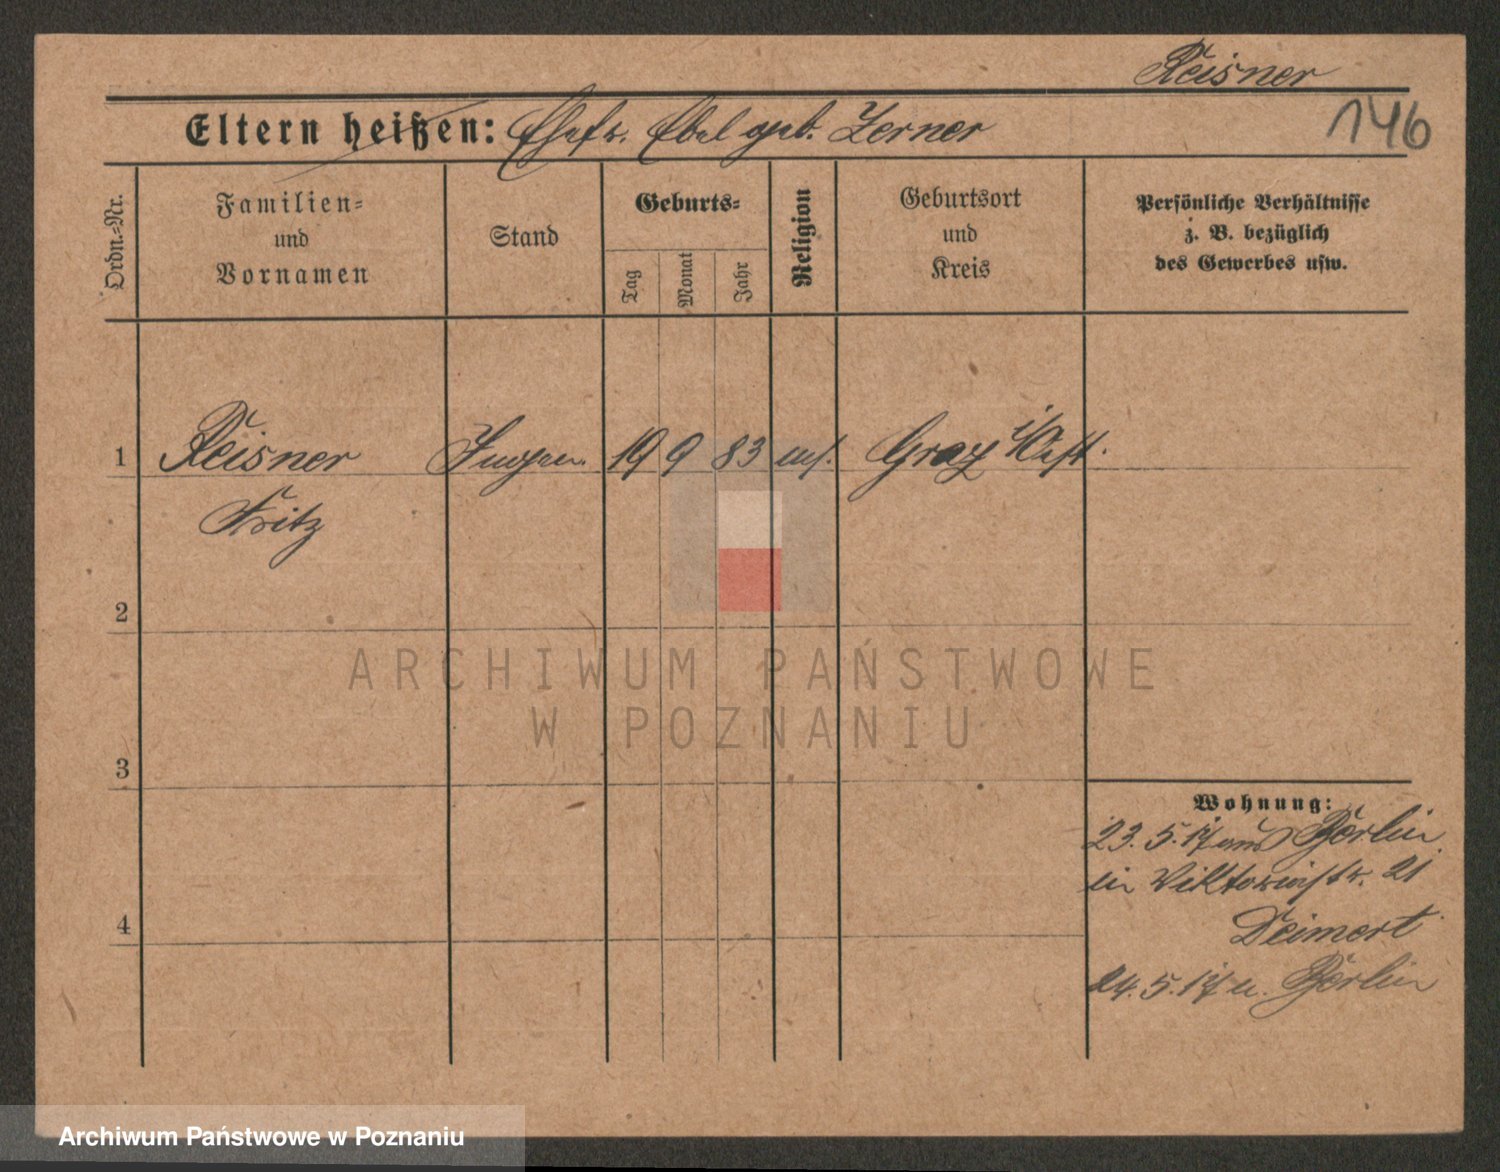 Reisner
146
Eltern heißen: Ehefr. Ebel geb. Zerner
Ordn.-Nr.
Familien-
und
Vornamen
Stand
Geburts-
Tag
Monat
Jahr
Religion
Geburtsort
und
Kreis
Persönliche Verhältnisse
z. B. bezüglich
des Gewerbes usw.
1 Reisner 19 9 83 Graz
Fritz
2
3
4
Wohnung:
23.5.17 aus Berlin
in Viktoriastr. 21
24.5.17 n. Berlin
ARCHIWUM PAŃSTWOWE
W POZNANIU
Archiwum Państwowe w Poznaniu